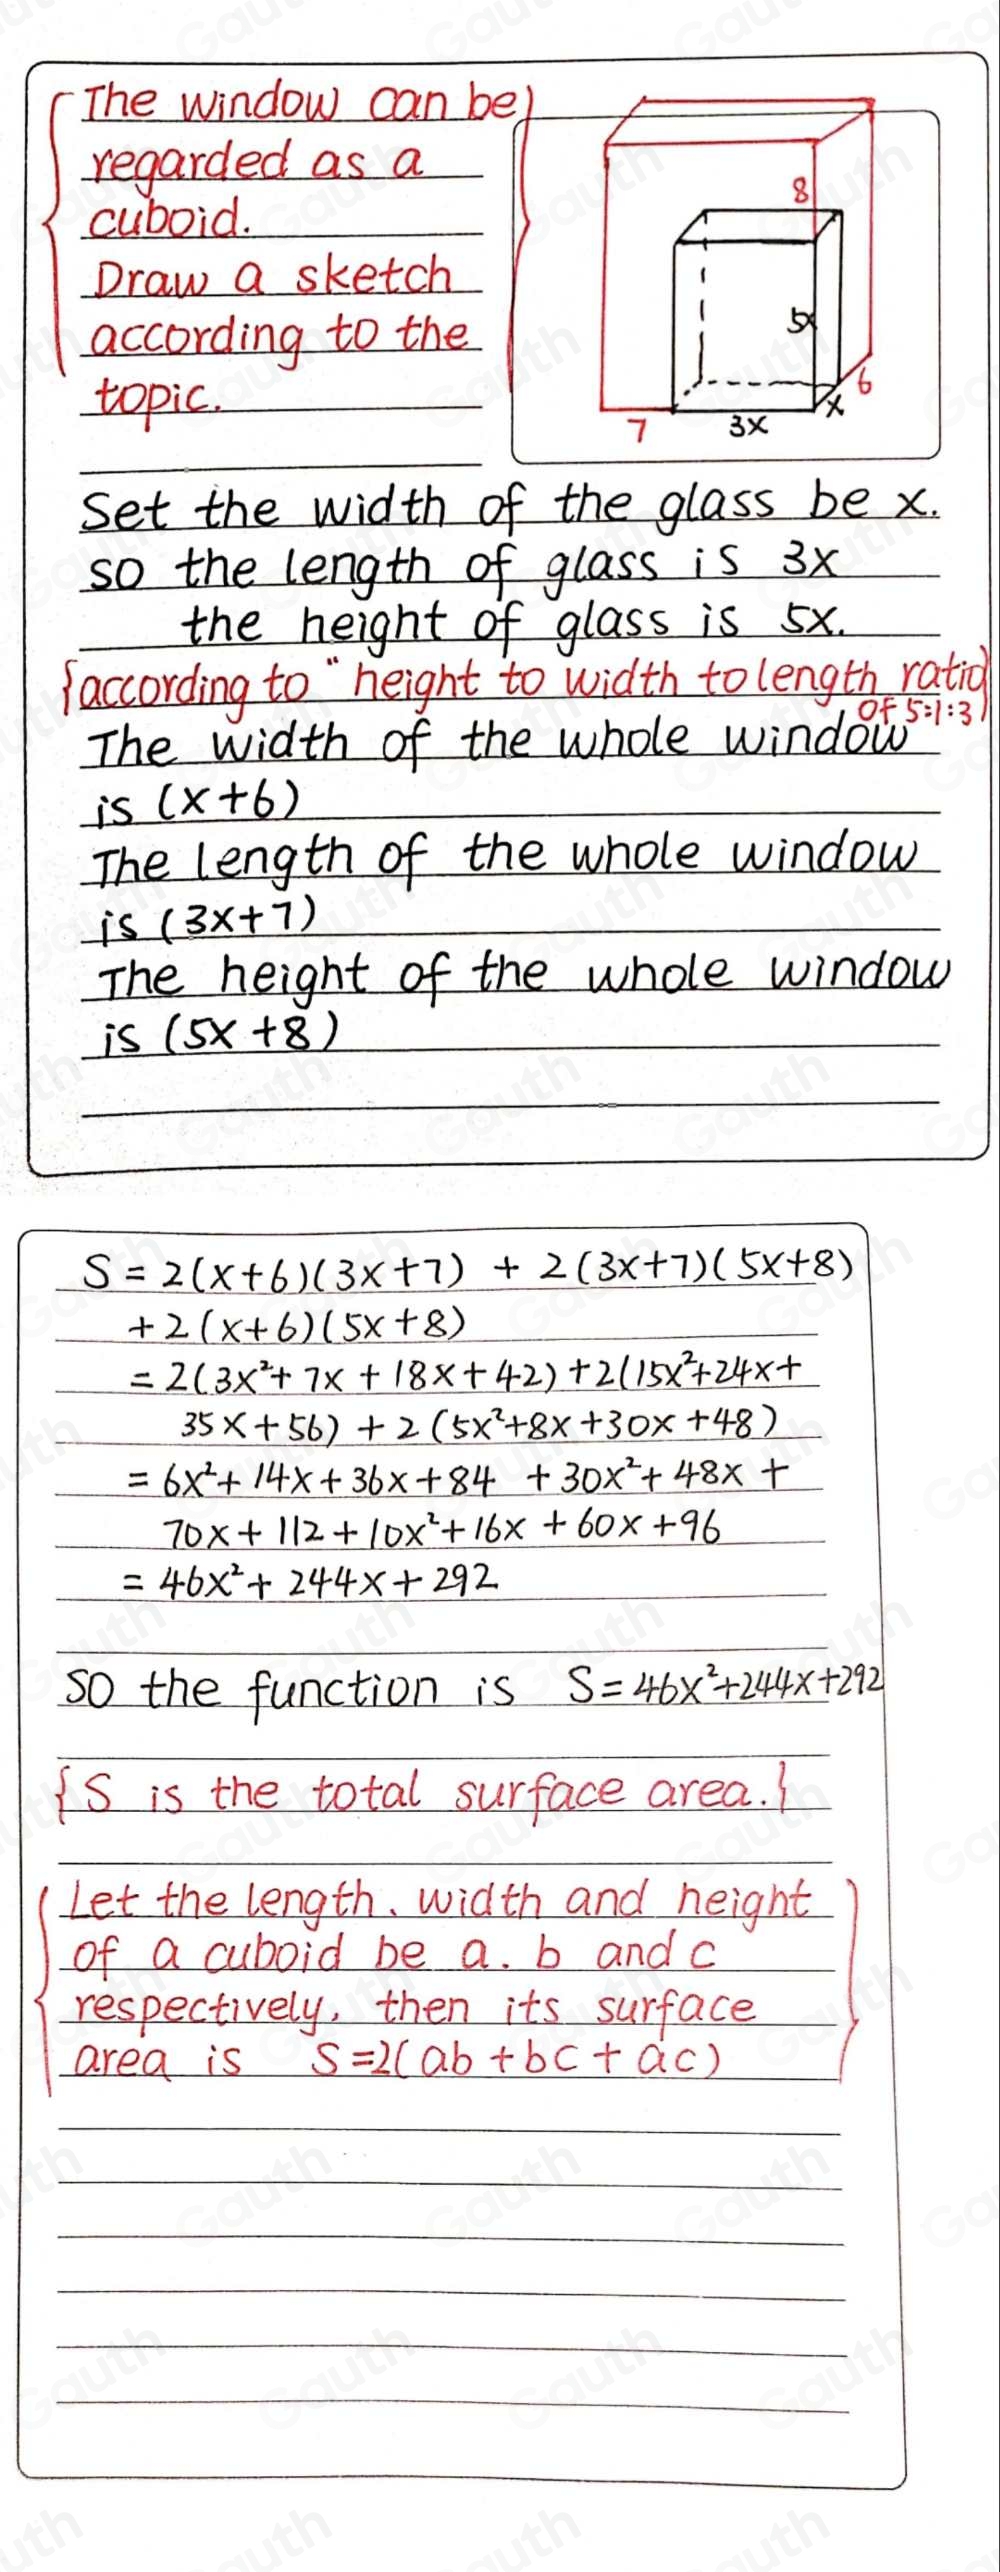 The window can be
regarded as a
cuboid.
Draw a sketch
according to the
topic.
8
5x
6
x
7
3x
Set the width of the glass be x.
so the length of glass is 3x
the height of glass is 5x.
{according to "height to width to length ratio
of 5:1:3}
The width of the whole window
is (x+6)
The length of the whole window
is (3x+7)
The height of the whole window
is (5x+8)
S=2(x+6)(3x+7) + 2(3x+7)(5x+8)
+2(x+6)(5x+8)
=2(3x²+7x+18x+42)+2(15x²+24x+
35x+56)+2(5x²+8x+30x+48)
=6x²+14x+36x+84 +30x²+48x+
70x+112+10x²+16x+60x+96
=46x²+244x+292
so the function is S=46x²+244x+292
{S is the total surface area.}
Let the length、width and height
of a cuboid be a. b and c
respectively, then its surface
area is S=2(ab+bc+ac)